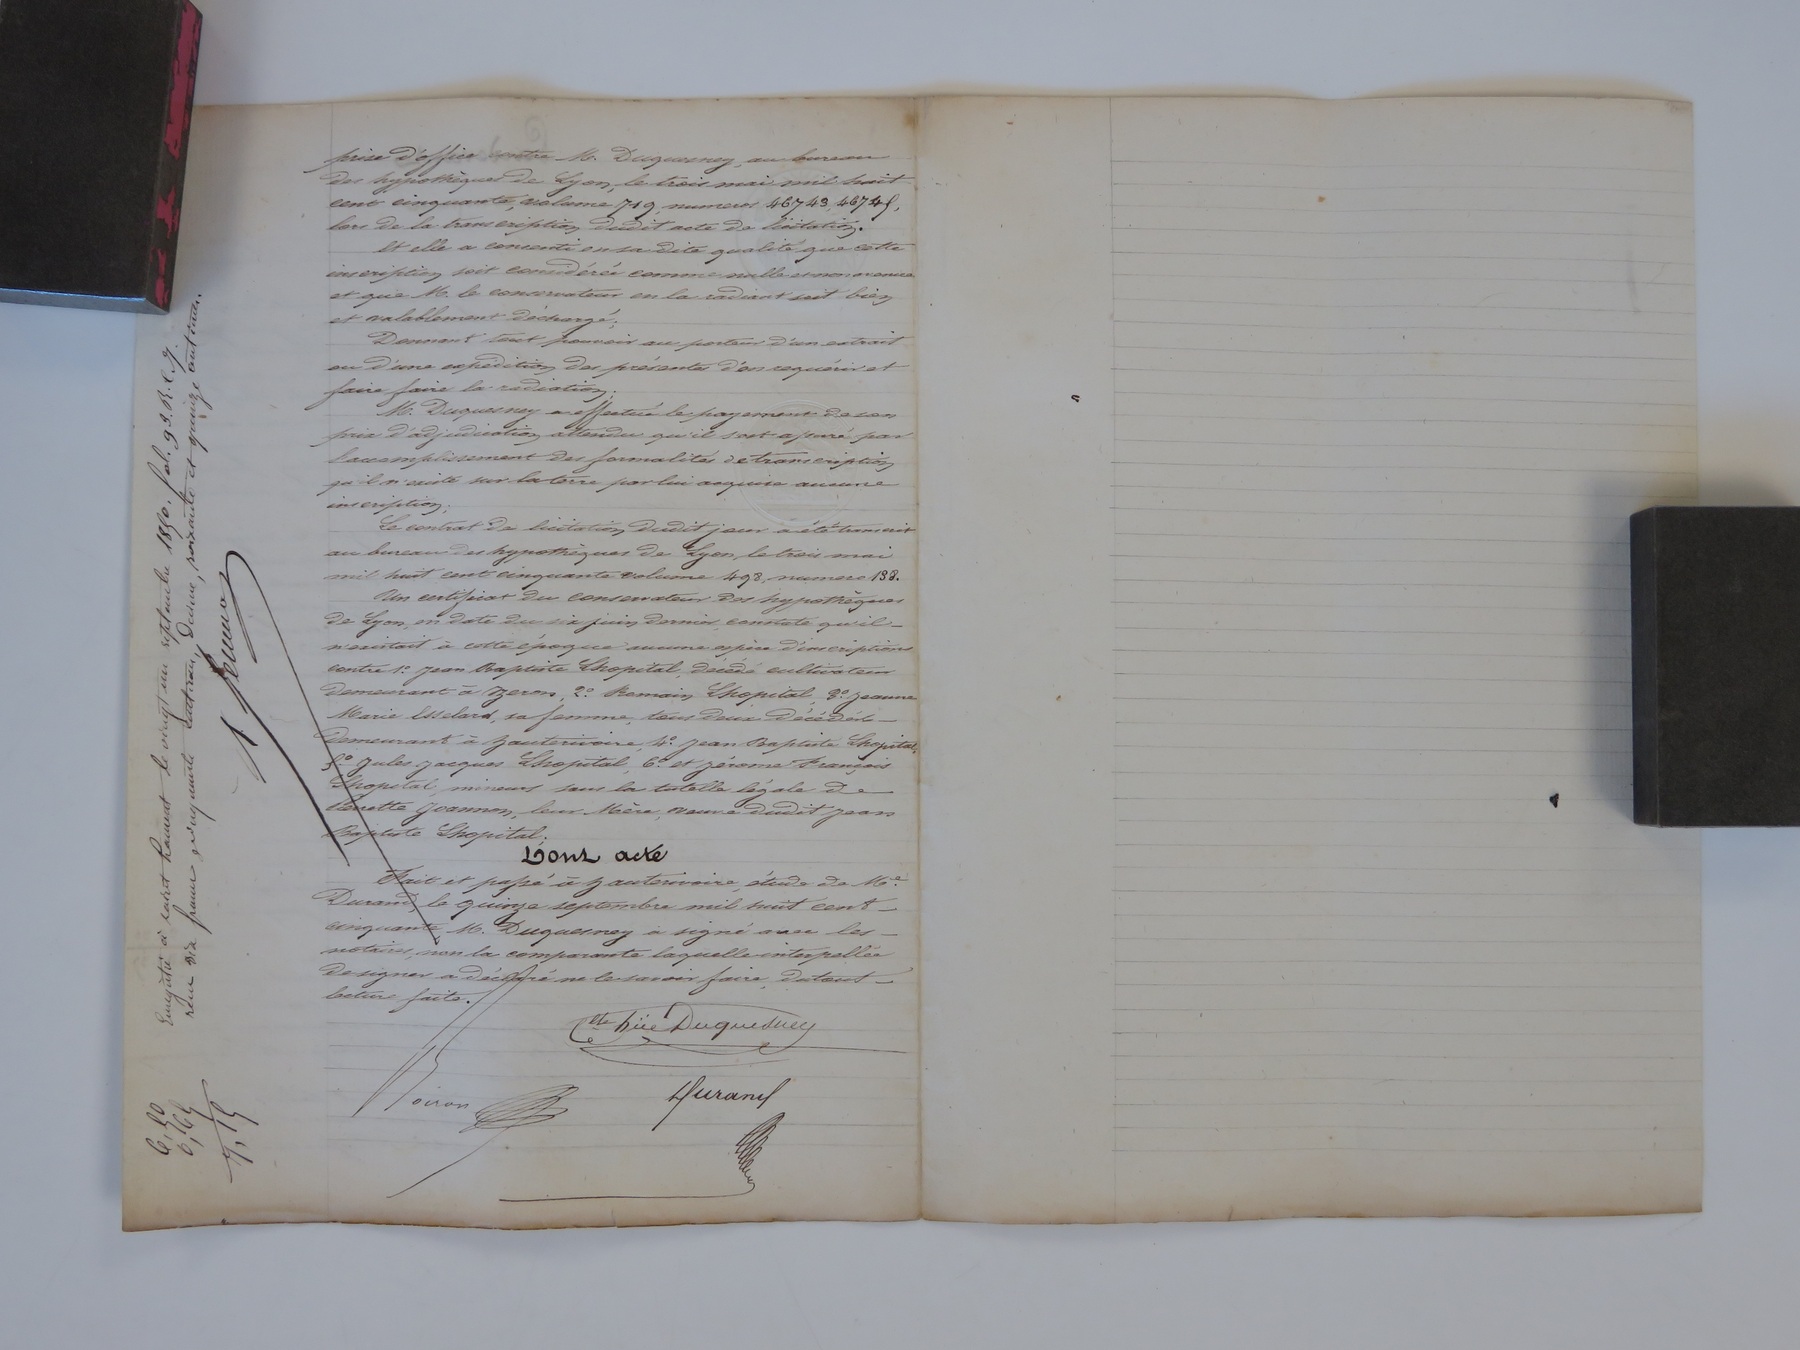 prise d'office contre M. Duquesney, au bureau
des hypothèques de Lyon, le trois mai mil huit
cent cinquante, volume 719, numeros 46743, 46745,
lors de la transcription dudit acte de licitation.
Et elle a consenti en sa dite qualité que cette
inscription soit considérée comme nulle et non avenue
et que M. le conservateur en la radiant soit bien
et valablement déchargé;
Donnant tout pouvoir au porteur d'un extrait
ou d'une expédition des présentes d'en requérir et
faire faire la radiation;
M. Duquesney a effectué le payement de son
prix d'adjudication attendu qu'il s'est assuré par
l'accomplissement des formalités de transcription
qu'il n'existe sur la terre par lui acquise aucune
inscription;
Le contrat de licitation dudit jour a été transcrit
au bureau des hypothèques de Lyon, le trois mai
mil huit cent cinquante volume 498, numero 138.
Un certificat du conservateur des hypothèques
de Lyon, en date du six juin dernier, constate qu'il
n'existait à cette époque aucune espèce d'inscription
contre 1º Jean Baptiste Lhopital, décédé cultivateur
demeurant à Yzeron, 2º Romain Lhopital, 3º Jeanne
Marie Esselard, sa femme, tous deux décédés
demeurant à hauterivoire, 4º Jean Baptiste Lhopital,
5º Jules Jacques Lhopital, 6º et Jérome François
Lhopital, mineurs sous la tutelle légale de
Benoite Joannon, leur Mère, veuve dudit Jean
Baptiste Lhopital.
Dont acte
Fait et passé à hauterivoire, étude de Me
Durand, le quinze septembre mil huit cent
cinquante M. Duquesney a signé avec les
notaires, non la comparante laquelle interpellée
de signer a déclaré ne le savoir faire, du tout
lecture faite.
Duquesney
Voiron
Durand
Enregistré à saint Laurent le vingt un septembre 1850. fol. 93. R. C. 9.
reçu six francs cinquante centimes, Decime, soixante et quinze centimes.
6,50
0,65
7,15